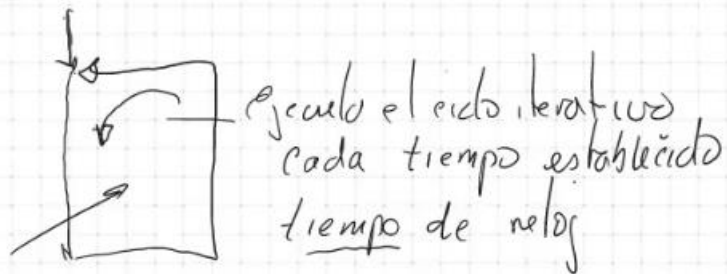 ejecuto el ciclo iterativo
cada tiempo establecido
tiempo de reloj